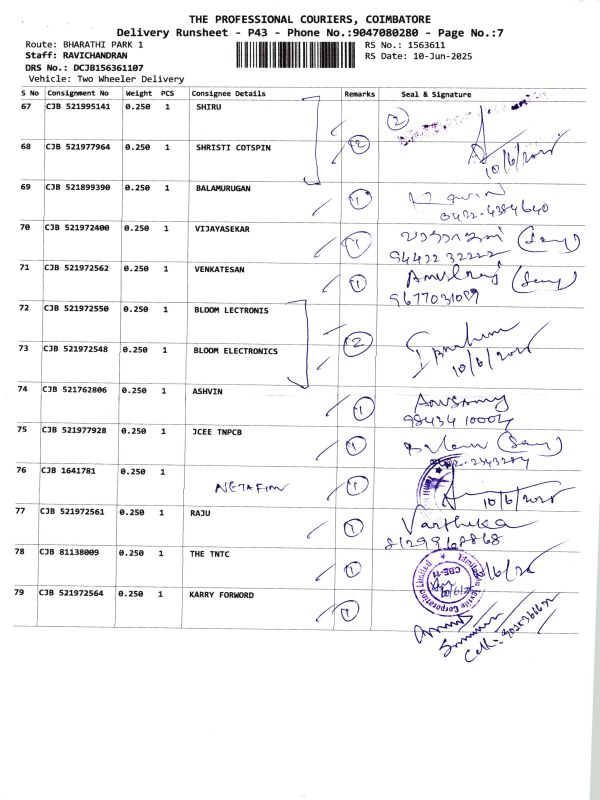 THE PROFESSIONAL COURIERS, COIMBATORE
Delivery Runsheet - P43 - Phone No.:9047080280 - Page No.:7
Route: BHARATHI PARK 1 RS No.: 1563611
Staff: RAVICHANDRAN RS Date: 10-Jun-2025
DRS No.: DCJB156361107
Vehicle: Two Wheeler Delivery
S No Consignment No Weight PCS Consignee Details Remarks Seal & Signature
67 CJB 521995141 0.250 1 SHIRU 2
68 CJB 521977964 0.250 1 SHRISTI COTSPIN 2
10/6/2025
69 CJB 521899390 0.250 1 BALAMURUGAN 1
0422-4384640
70 CJB 521972400 0.250 1 VIJAYASEKAR 1
94422 32222
71 CJB 521972562 0.250 1 VENKATESAN 1
72 CJB 521972550 0.250 1 BLOOM LECTRONIS
2
73 CJB 521972548 0.250 1 BLOOM ELECTRONICS
10/6/2025
74 CJB 521762806 0.250 1 ASHVIN 1
98434 10004
75 CJB 521977928 0.250 1 JCEE TNPCB 1
76 CJB 1641781 0.250 1
NETAFIM 1 10/6/2025
77 CJB 521972561 0.250 1 RAJU 1 Varthika
78 CJB 81138009 0.250 1 THE TNTC 1
CBE-11
79 CJB 521972564 0.250 1 KARRY FORWORD 1
Cell: